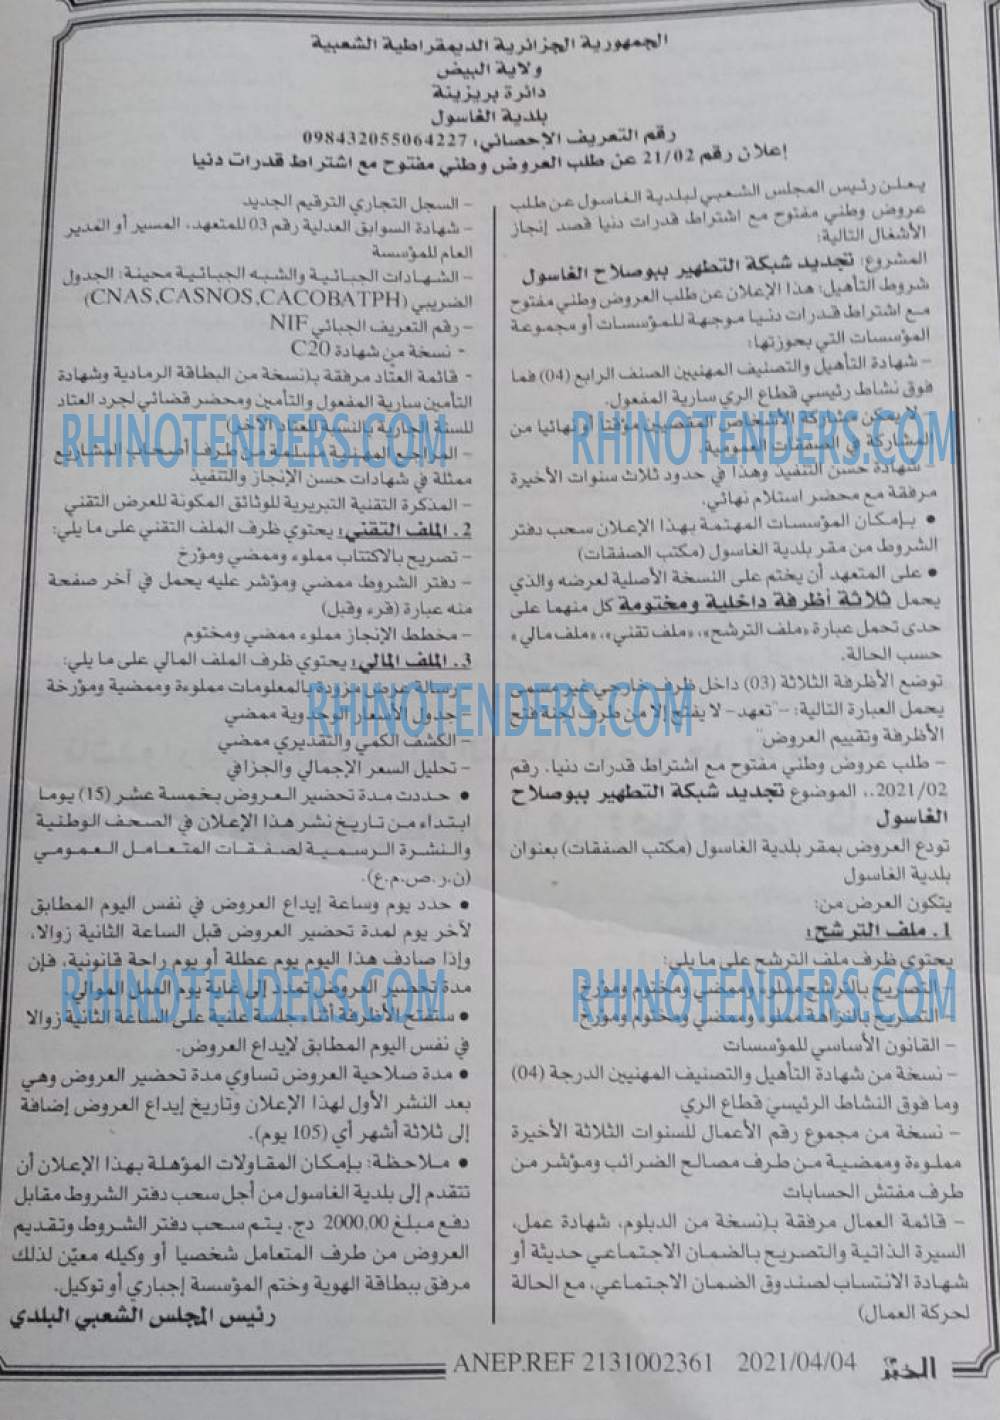 الجمهورية الجزائرية الديمقراطية الشعبية
ولاية البيض
دائرة بريزينة
بلدية الغاسول
رقم التعريف الإحصائي: 098432055064227
إعلان رقم 21/02 عن طلب العروض وطني مفتوح مع اشتراط قدرات دنيا
يعلن رئيس المجلس الشعبي لبلدية الغاسول عن طلب
عروض وطني مفتوح مع اشتراط قدرات دنيا قصد إنجاز
الأشغال التالية:
المشروع: تجديد شبكة التطهير ببوصلاح الغاسول
شروط التأهيل: هذا الإعلان عن طلب العروض وطني مفتوح
مع اشتراط قدرات دنيا موجهة للمؤسسات أو مجموعة
المؤسسات التي بحوزتها:
– شهادة التأهيل والتصنيف المهنيين الصنف الرابع (04) فما
فوق نشاط رئيسي قطاع الري سارية المفعول.
– لا يمكن مشاركة الأشخاص المقصيين مؤقتا أو نهائيا من
المشاركة في الصفقات العمومية.
– شهادة حسن التنفيذ وهذا في حدود ثلاث سنوات الأخيرة
مرفقة مع محضر استلام نهائي.
• بإمكان المؤسسات المهتمة بهذا الإعلان سحب دفتر
الشروط من مقر بلدية الغاسول (مكتب الصفقات)
• على المتعهد أن يختم على النسخة الأصلية لعرضه والذي
يحمل ثلاثة أظرفة داخلية ومختومة كل منهما على
حدى تحمل عبارة «ملف الترشح»، «ملف تقني»، «ملف مالي»
حسب الحالة.
توضع الأظرفة الثلاثة (03) داخل ظرف خارجي غير مسمى
يحمل العبارة التالية: – "تعهد – لا يفتح إلا من طرف لجنة فتح
الأظرفة وتقييم العروض"
– طلب عروض وطني مفتوح مع اشتراط قدرات دنيا. رقم
2021/02.. الموضوع تجديد شبكة التطهير ببوصلاح
الغاسول
تودع العروض بمقر بلدية الغاسول (مكتب الصفقات) بعنوان
بلدية الغاسول
يتكون العرض من:
1. ملف الترشح:
يحتوي ظرف ملف الترشح على ما يلي:
– التصريح بالترشح مملوء وممضي ومختوم ومؤرخ
– التصريح بالنزاهة مملوء وممضي ومختوم ومؤرخ
– القانون الأساسي للمؤسسات
– نسخة من شهادة التأهيل والتصنيف المهنيين الدرجة (04)
وما فوق النشاط الرئيسي قطاع الري
– نسخة من مجموع رقم الأعمال للسنوات الثلاثة الأخيرة
مملوءة وممضية من طرف مصالح الضرائب ومؤشر من
طرف مفتش الحسابات
– قائمة العمال مرفقة بـ(نسخة من الدبلوم، شهادة عمل،
السيرة الذاتية والتصريح بالضمان الاجتماعي حديثة أو
شهادة الانتساب لصندوق الضمان الاجتماعي، مع الحالة
لحركة العمال)
– السجل التجاري الترقيم الجديد
– شهادة السوابق العدلية رقم 03 للمتعهد، المسير أو المدير
العام للمؤسسة
– الشهادات الجبائية والشبه الجبائية محينة: الجدول
الضريبي (CNAS,CASNOS,CACOBATPH)
– رقم التعريف الجبائي NIF
- نسخة من شهادة C20
- قائمة العتاد مرفقة بـ(نسخة من البطاقة الرمادية وشهادة
التأمين سارية المفعول والتأمين ومحضر قضائي لجرد العتاد
للسنة الجارية بالنسبة للعتاد الآخر)
– المراجع المهنية مسلمة من طرف أصحاب المشاريع
ممثلة في شهادات حسن الإنجاز والتنفيذ
– المذكرة التقنية التبريرية للوثائق المكونة للعرض التقني
2. الملف التقني: يحتوي ظرف الملف التقني على ما يلي:
– تصريح بالاكتتاب مملوء وممضي ومؤرخ
– دفتر الشروط ممضي ومؤشر عليه يحمل في آخر صفحة
منه عبارة (قرء وقبل)
– مخطط الإنجاز مملوء ممضي ومختوم
3. الملف المالي: يحتوي ظرف الملف المالي على ما يلي:
– رسالة عرض مزودة بالمعلومات مملوءة وممضية ومؤرخة
– جدول الأسعار الوحدوية ممضي
– الكشف الكمي والتقديري ممضي
– تحليل السعر الإجمالي والجزافي
• حددت مدة تحضير العروض بخمسة عشر (15) يوما
ابتداء من تاريخ نشر هذا الإعلان في الصحف الوطنية
والنشرة الرسمية لصفقات المتعامل العمومي
(ن.ر.ص.م.ع).
• حدد يوم وساعة إيداع العروض في نفس اليوم المطابق
لآخر يوم لمدة تحضير العروض قبل الساعة الثانية زوالا،
وإذا صادف هذا اليوم يوم عطلة أو يوم راحة قانونية، فإن
مدة تحضير العروض تمدد إلى غاية يوم العمل الموالي
• ستفتح الأظرفة أثناء جلسة علنية على الساعة الثانية زوالا
في نفس اليوم المطابق لإيداع العروض.
• مدة صلاحية العروض تساوي مدة تحضير العروض وهي
بعد النشر الأول لهذا الإعلان وتاريخ إيداع العروض إضافة
إلى ثلاثة أشهر أي (105 يوم).
• ملاحظة: بإمكان المقاولات المؤهلة بهذا الإعلان أن
تتقدم إلى بلدية الغاسول من أجل سحب دفتر الشروط مقابل
دفع مبلغ 2000,00 دج. يتم سحب دفتر الشروط وتقديم
العروض من طرف المتعامل شخصيا أو وكيله معيّن لذلك
مرفق ببطاقة الهوية وختم المؤسسة إجباري أو توكيل.
رئيس المجلس الشعبي البلدي
الخبر 2021/04/04 ANEP.REF 2131002361
RHINOTENDERS.COM
RHINOTENDERS.COM
RHINOTENDERS.COM
RHINOTENDERS.COM
RHINOTENDERS.COM